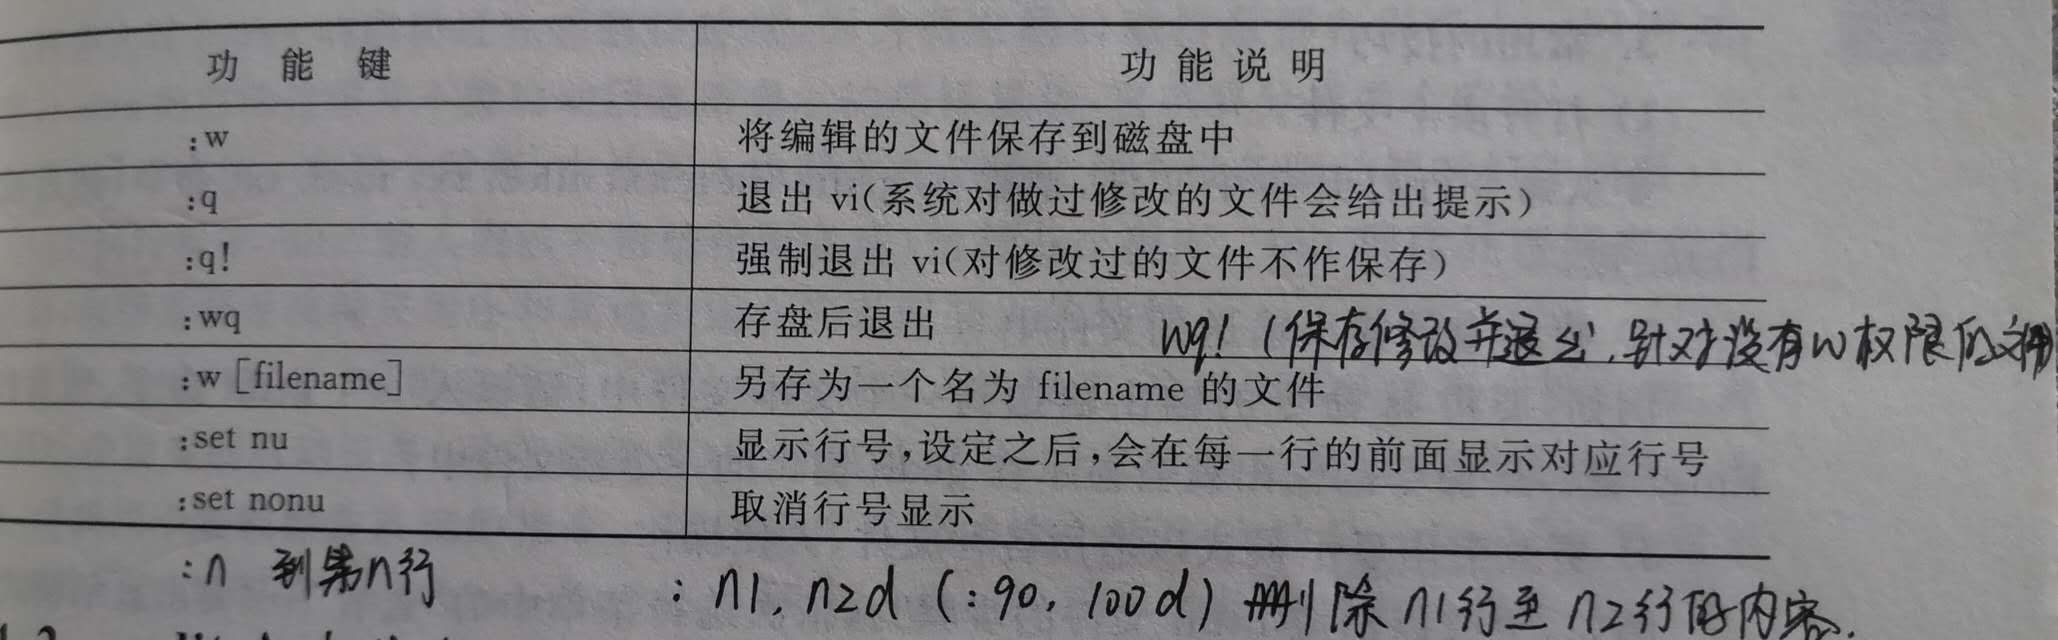 功 能 键 功 能 说 明
:w 将编辑的文件保存到磁盘中
:q 退出 vi(系统对做过修改的文件会给出提示)
:q! 强制退出 vi(对修改过的文件不作保存)
:wq 存盘后退出 wq! (保存修改并退出,针对没有w权限的文件
:w [filename] 另存为一个名为 filename 的文件
:set nu 显示行号,设定之后,会在每一行的前面显示对应行号
:set nonu 取消行号显示
:n 到第n行 : n1, n2d (:90, 100d) 删除 n1行至 n2行的内容.